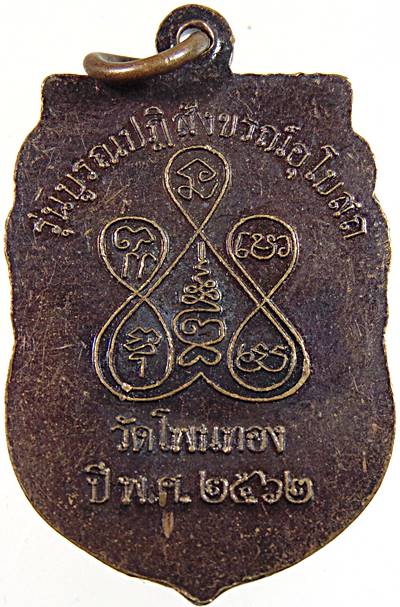 รุ่นบูรณปฏิสังขรณ์อุโบสถ
วัดโพนทอง
ปี พ.ศ. ๒๕๖๒